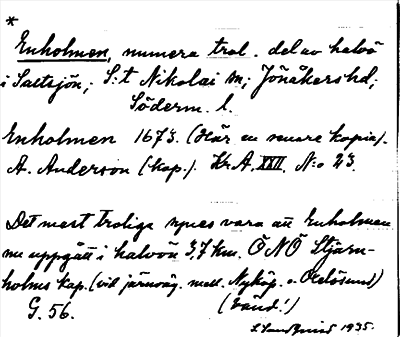 *
Enholmen, numera trol. del av halvö
i Saltsjön; S:t Nikolai sn; Jönåkers hd;
Söderm. l.
Enholmen 1673. (Här en senare kopia).
A. Anderson (kop.). Kr. A. XXII. N:o 23.
Det mest troliga synes vara att Enholmen
nu uppgått i halvön 3,7 km. ÖNÖ Stjärn-
holms kap. (vid järnväg. mell. Nyköp. o Oxelösund)
G. 56. (Vänd!)
1935.